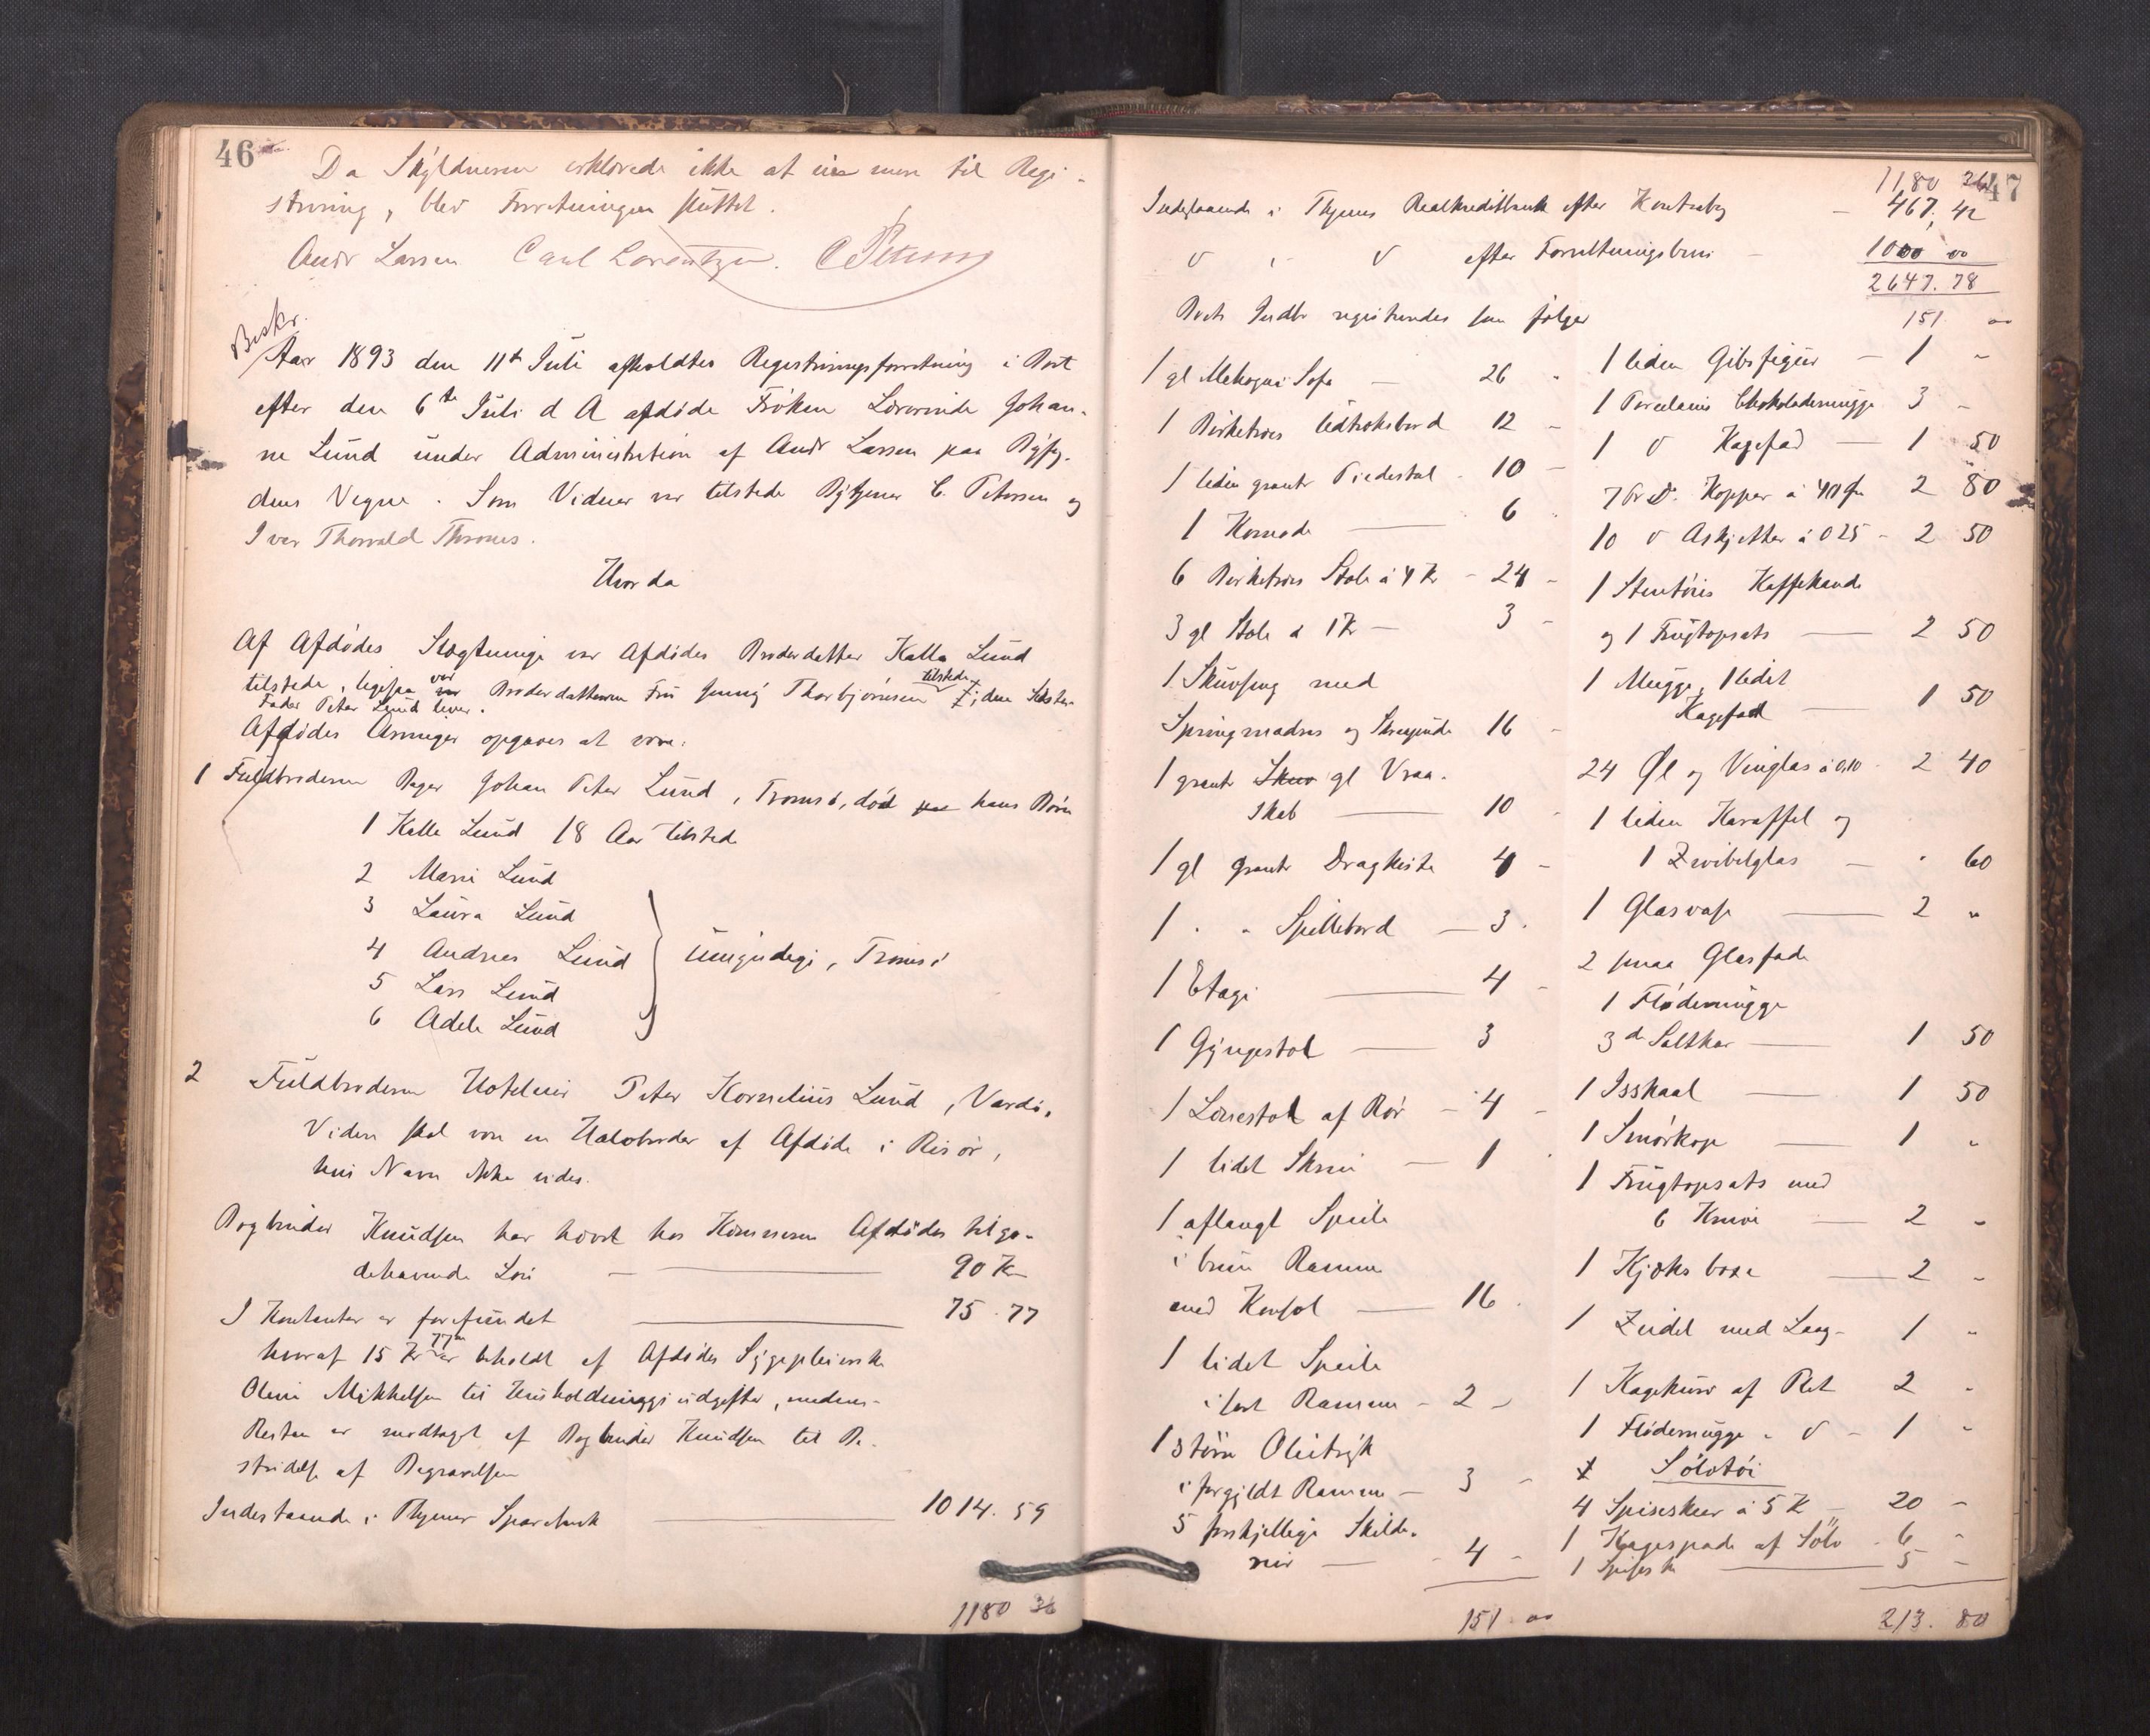 46
Da Skyldneren erklærede ikke at eie mere til Regi-
strering, blev Forretningen sluttet.
Andr Larsen Carl Lorentzen. C Petersen
Beskr.
Aar 1893 den 11te Juli afholdtes Registreringsforretning i Boet
efter den 6te Juli d A afdøde Frøken Lærerinde Johan-
ne Lund under Administration af Andr Larsen paa Byfog-
dens Vegne. Som Vidner var tilstede C. Petersen og
Iver Thorvald
Hvorda
Af Afdødes Slægtninge var Afdødes Broderdatter Kalla Lund
tilstede, ligesaa var Broderdatteren Fru Jenny Thorbjørnsen tilstede, dens
Fader Peter Lund lever.
Afdødes Arvinger opgaves at være:
1 Fuldbroderen Bager Johan Peter Lund, Tromsø, død hans Børn
1 Kalla Lund 18 Aar tilstede
2 Marie Lund
3 Laura Lund
4 Andreas Lund
5 Lars Lund
6 Adele Lund
umyndige, Tromsø
2 Fuldbroderen Hoteleier Peter Kornelius Lund, Vardø,
Videre skal være en Halvbroder af Afdøde i Risør,
hvis Navn ikke vides.
Bogbinder Knudsen har hævet hos Kæmneren Afdødes tilgo-
dehavende Løn 90 Kr
I Kontanter er forefundet 75.77
hvoraf 15 Kr 77 er beholdt af Afdødes Sygepleierske
Oline Mikkelsen til Husholdningsudgifter, medens
Resten er modtaget af Bogbinder Knudsen til Be-
stridelse af Begravelsen
Indestaaende i Thjems Sparebank 1014.59
1180 36
47
1180 36
Indestaaende i Thjems Realkreditbank efter Kontrabog 467.42
efter Forvaltningsbevis 1000 00
2647.78
Boets Indbo registreredes som følger
1 gl Mahogni Sofa 26 -
1 Birketræes Udtræksbord 12 -
1 liden graat Piedestal 10 -
1 Komode 6
6 Birketræes Stole á 4 Kr 24 -
3 gl Stole á 1 Kr 3 -
1 Skuvseng med
Springmadras og Skrepude 16 -
1 graat Skuv gl Vraa-
skab 10 -
1 gl graat Dragkiste 4 -
1 " " Spillebord 3
1 Etage 4 -
1 Gyngestol 3
1 Lænestol af Rør 4 -
1 lidet Skrin 1
1 aflangt Speile
i brun Ramme
med Konsol 16
1 lidet Speile
i sort Ramme 2 -
1 større Olietryk
i forgyldt Ramme 3 -
5 forskjellige Skilde-
rier 4 -
151 00
151 00
1 liden Gibsfigur 1 -
1 Porcelains Chokolademugge 3 -
1 d Kagefad 1 50
7 Par D. Kopper á 40 Øre 2 80
10 d Askjetter á 025 2 50
1 Stentøies Kaffekande
og 1 Frugtopsats 2 50
1 Mugge, 1 lidet
Kagefad 1 50
24 Øl og Vinglas á 0,10 2 40
1 liden Karaffel og
1 Zwibelglas " 60
1 Glasvase 2 "
2 smaa Glasfade
1 Flødemugge
3 d Saltkar 1 50
1 Isskaal 1 50
1 Smørkop 1 "
1 Frugtopsats med
6 Knive 2 -
1 Kjøksboxe 2 -
1 Zeidel med Laag 1 "
1 Kagekurv af Plet 2 -
1 Flødemugge " d 1 "
Sølvtøi
4 Spiseskeer á 5 Kr 20 -
1 Kagespade af Sølv 6 -
1 Spisesk 5 -
213.80